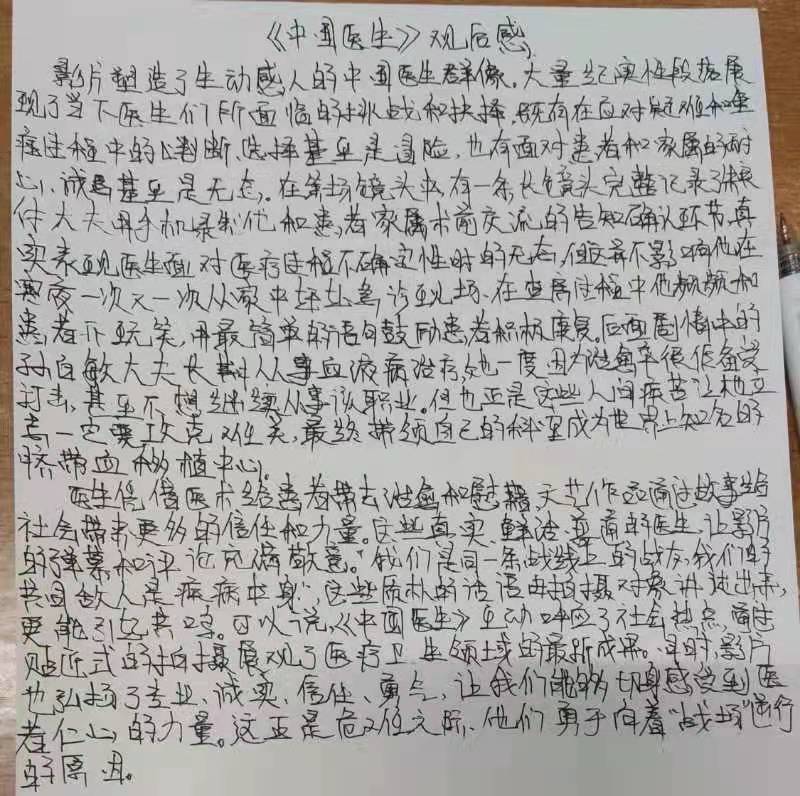 《中国医生》观后感
影片塑造了生动感人的中国医生群像。大量纪实性段落展
现了当下医生们所面临的挑战和抉择,既存在应对疑难和重
症过程中的判断、选择甚至是冒险,也有面对患者和家属的耐
心、诚恳甚至是无奈。在紧场镜头中,有一条长镜头完整记录了
大夫用手机录制他和患者家属术前交流的告知确认环节,真
实表现医生面对医疗过程不确定性时的无奈,但这并不影响他在
深夜一次又一次从家中赶赴急诊现场、在查房过程中他频频和
患者开玩笑,用最简单的语句鼓励患者积极康复。后面剧情中的
孙自敏大夫长期从事血液病治疗,她一度因为治愈率很低备受
打击,甚至不想继续从事该职业。但也正是这些人间疾苦让她立
志一定要攻克难关,最终带领自己的科室成为世界上知名的
脐带血移植中心。
医生凭借医术给患者带去治愈和慰藉,文艺作品通过故事给
社会带来更多的信任和力量。这些真实、鲜活、普通的医生,让影片
的弹幕和评论充满敬意。“我们是同一条战线上的战友,我们的
共同敌人是疾病本身”,这些质朴的话语由拍摄对象讲述出来,
更能引起共鸣。可以说,《中国医生》主动呼应了社会热点,通过
贴近式的拍摄展现了医疗卫生领域的最新成果。同时,影片
也弘扬了专业、诚实、信任、勇气,让我们能够切身感受到医
者仁心的力量。这正是危难之际,他们勇于向着“战场”逆行
的原因。